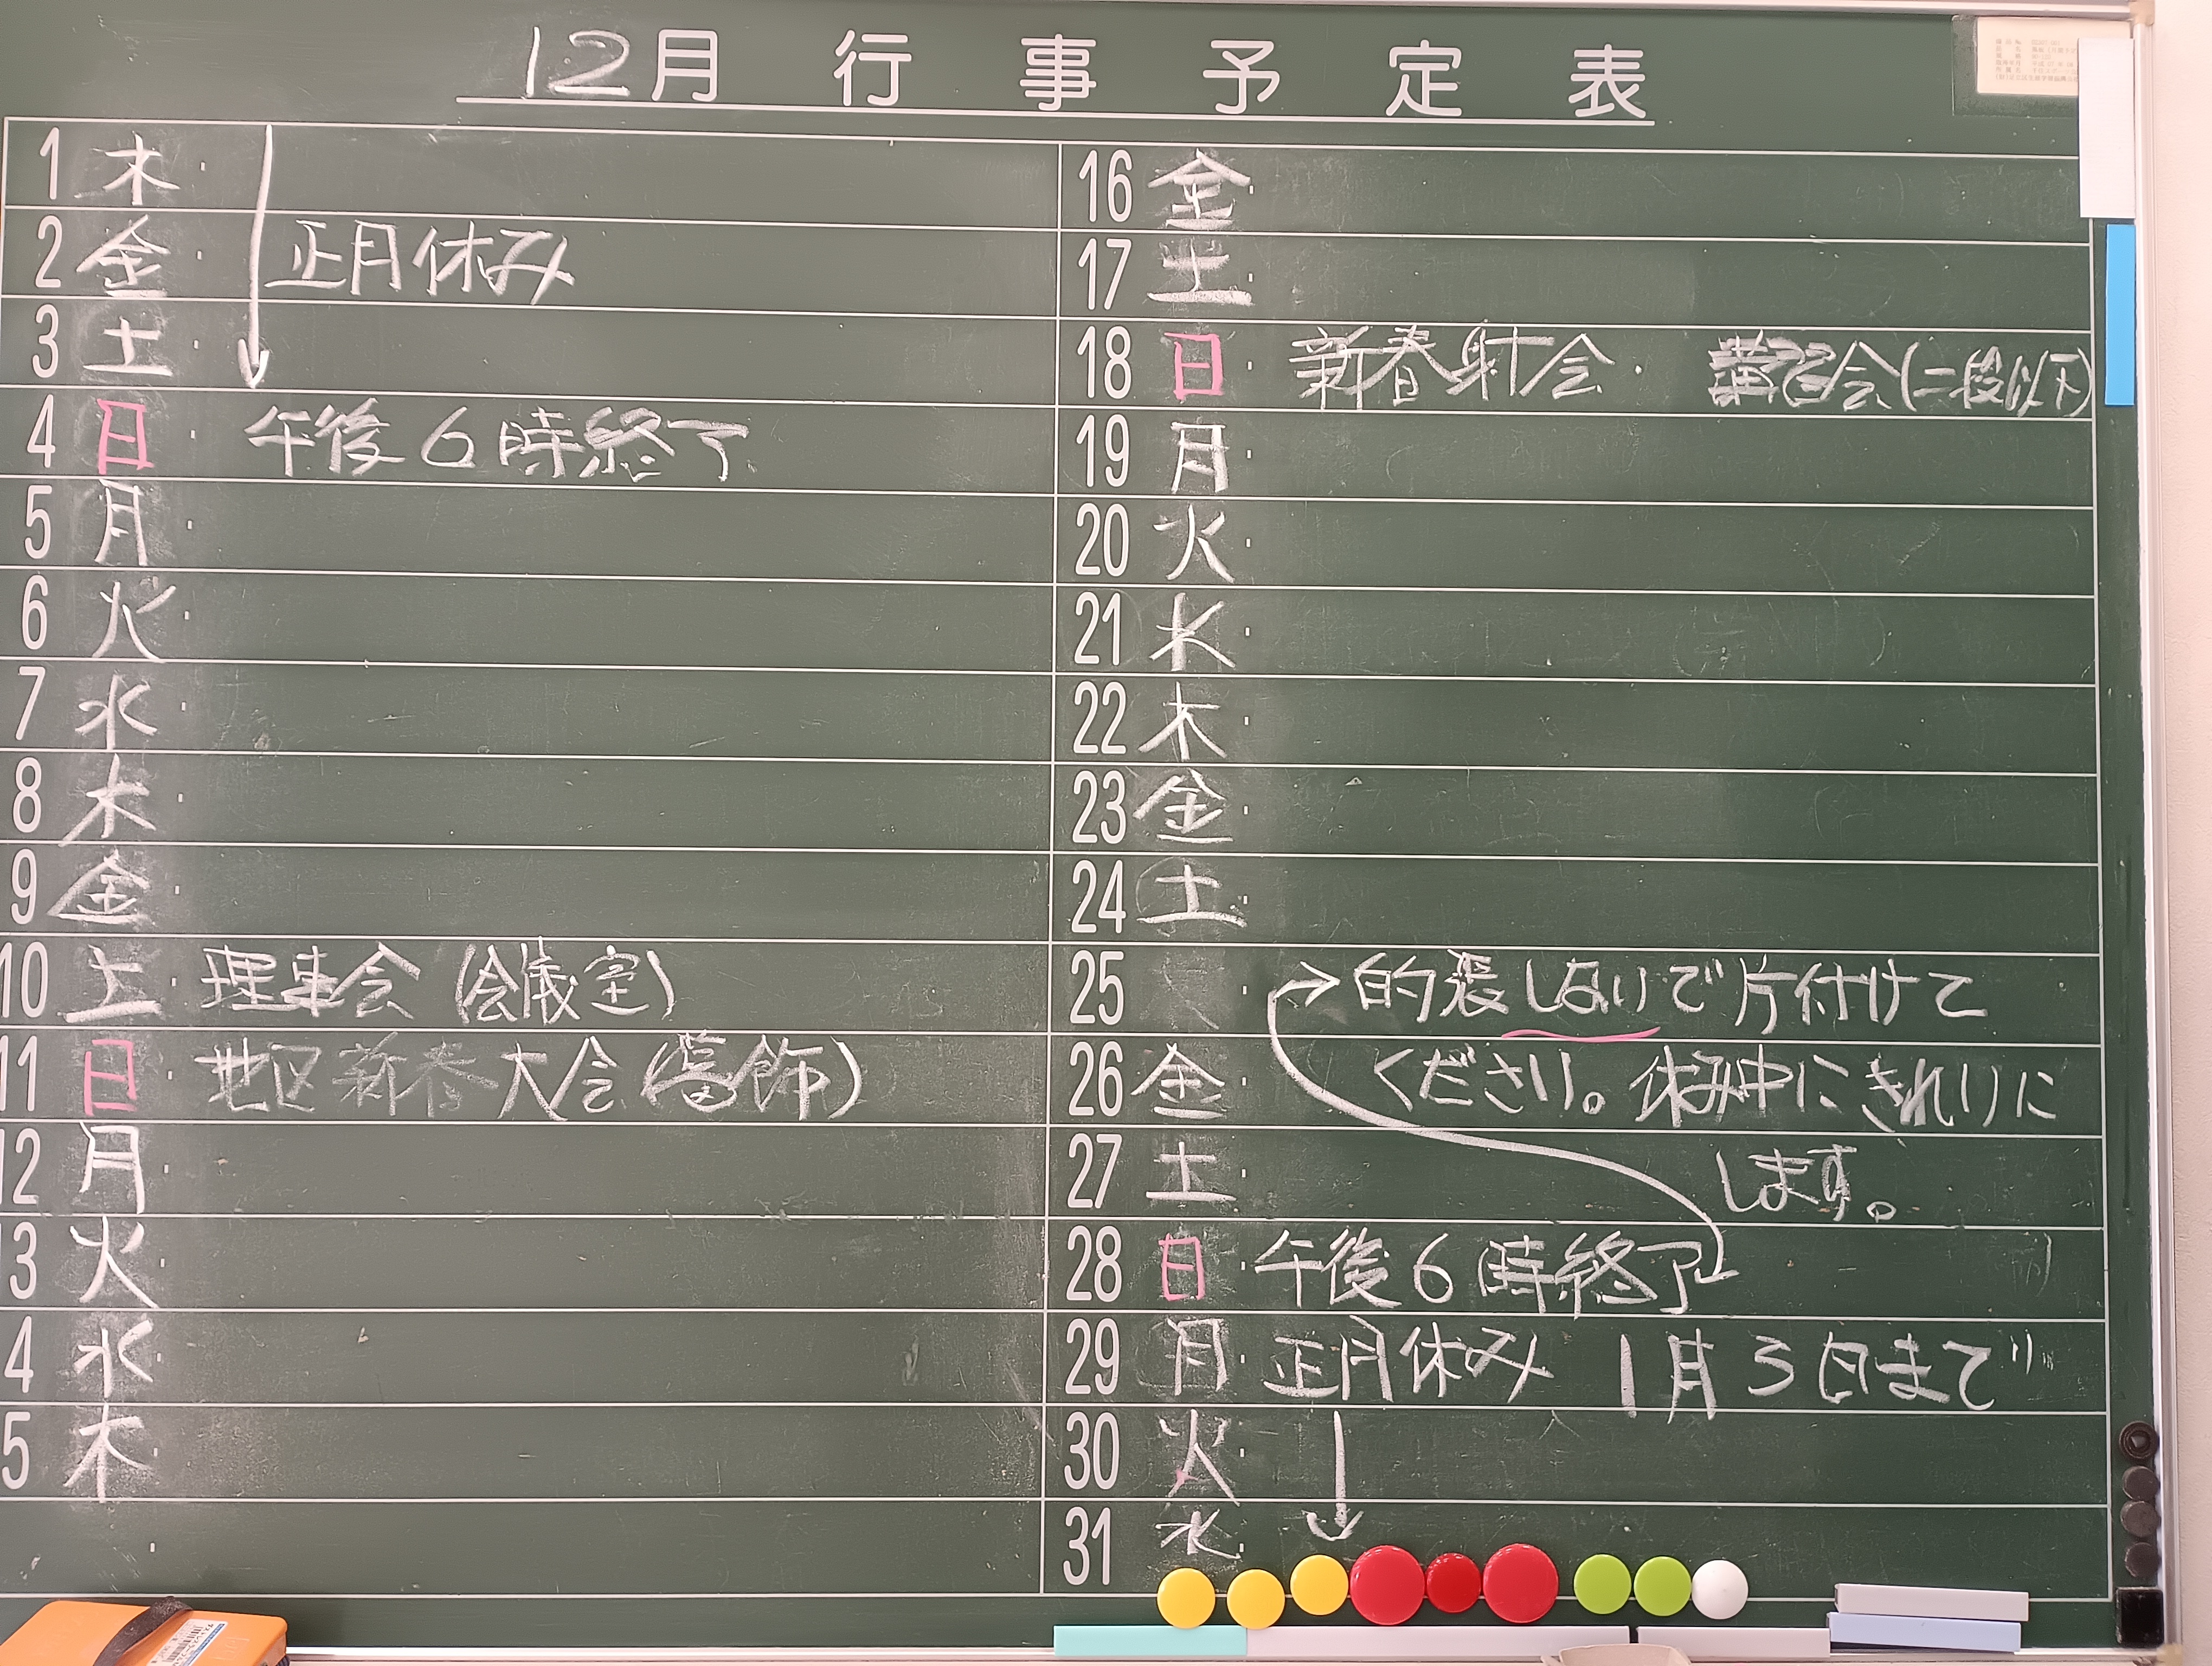 12月 行事予定表
1 木
2 金 正月休み
3 土
4 日 午後6時終了
5 月
6 火
7 水
8 木
9 金
10 土 理事会 (会議室)
11 日 地区新春大会(葛飾)
12 月
3 火
4 水
5 木
16 金
17 土
18 日 新春射会 講習会(二段以下)
19 月
20 火
21 水
22 木
23 金
24 土
25 的張しないで片付けて
26 金 ください。休み中にきれいに
27 土 します。
28 日 午後6時終了
29 月 正月休み 1月3日まで
30 火
31 水